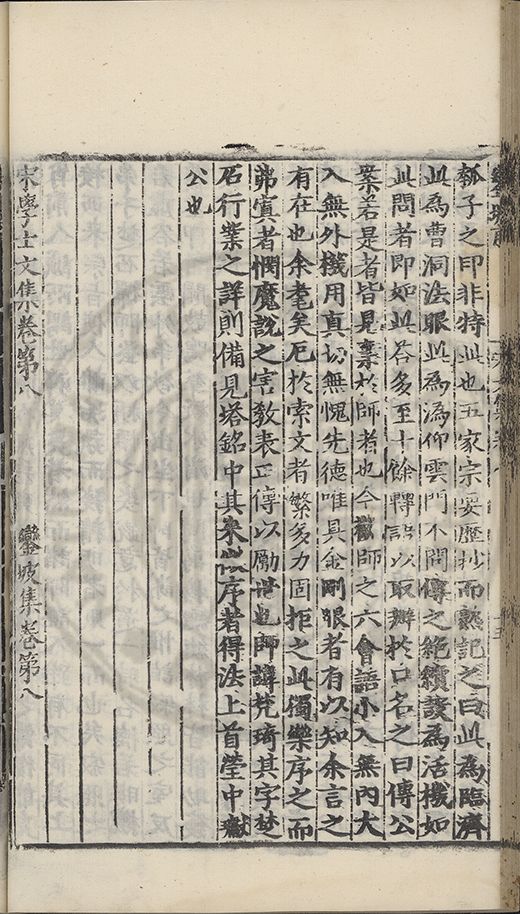 瓠子之印非特此也五家宗要歷抄而熟記之曰此為臨濟
此為曹洞法眼此為溈仰雲門不問傳之絕續設為活機如
此問者即如此荅多至十餘轉語以取辦於口名之曰傳公
案若是者皆見棄於師者也今觀師之六會語小入無內大
入無外機用真切無愧先德唯具金剛眼者有以知余言之
有在也余耄矣厄於索文者繁多力固拒之此獨樂序之而
弗寘者憫魔說之害教表正傳以勵世也師諱梵琦其字楚
石行業之詳則備見塔銘中其來徵序者得法上首瑩中巘
公也
宋學士文集卷第八 鑾坡集卷第八